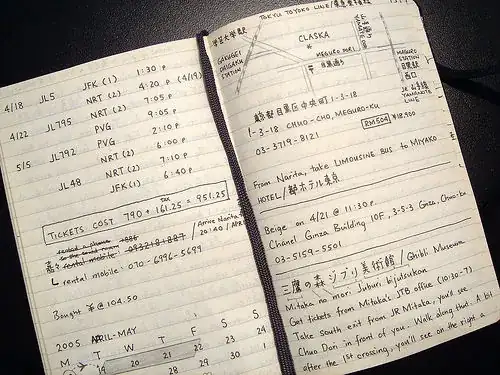 4/18 JL5 JFK (1) 1:30 P
NRT (2) 4:20 P (4/19)
4/22 JL795 NRT (2) 7:05 P
PVG 9:05 P
5/5 JL792 PVG 2:10 P
NRT (2) 6:00 P
JL48 NRT (2) 7:10 P
JFK (1) 6:40 P
TICKETS COST 790 + TAX 161.25 = 951.25
rental mobile: 070-6996-5699
Bought ¥ @ 104.50
2005 APRIL-MAY
M T W T F S S
19 20 21 22 23 24
28 29 30 1
TOKYU TOYOKO LINE/
学芸大学駅
GAKUGEI DAIGAKU STATION
CLASKA
MEGURO DORI
目黒通り
山手通り
YAMATE
MEGURO STATION
目黒駅
西口
JR 山手線
YAMANOTE LINE
東京都目黒区中央町1-3-18
1-3-18 CHUO-CHO, MEGURO-KU
03-3719-8121
RM504 ¥18,900
From Narita, take LIMOUSINE BUS to MIYAKO
HOTEL/都ホテル東京
Beige on 4/21 @ 11:30 P.
Chanel Ginza Building 10F, 3-5-3 Ginza, Chuo-ku
03-5159-5501
三鷹の森ジブリ美術館/Ghibli Museum
Mitaka no mori Jiburi bijutsukan
Get tickets from Mitaka's JTB office (10:30-7).
Take south exit from JR Mitaka, you'll see
Chuo Dori in front of you. Walk along that. A bit
after the 1st crossing, you'll see on the right a